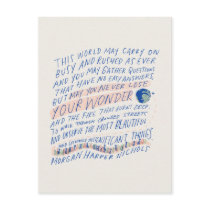 THIS WORLD MAY CARRY ON
BUSY AND RUSHED AS EVER
AND YOU MAY GATHER QUESTIONS
THAT HAVE NO EASY ANSWERS,
BUT MAY YOU NEVER LOSE
YOUR WONDER
AND THE FIRE THAT BURNS DEEP
TO WALK THROUGH CROWDED STREETS
AND OBSERVE THE MOST BEAUTIFUL
AND SEEMINGLY INSIGNIFICANT THINGS
MORGAN HARPER NICHOLS